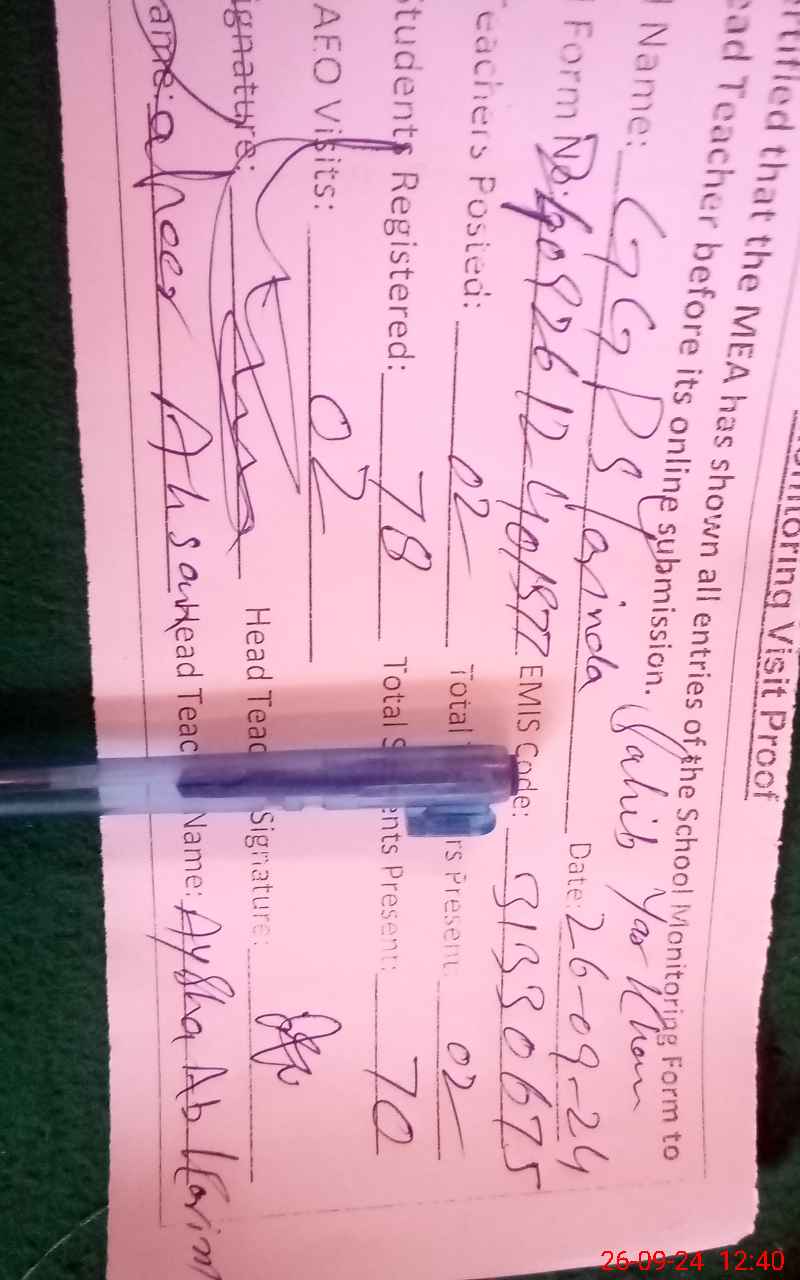 nitoring Visit Proof
rtified that the MEA has shown all entries of the School Monitoring Form to
ead Teacher before its online submission.
l Name: GGPS Sahib Yar Khan
Date: 26-09-24
Form No: EMIS Code: 31330675
eachers Posted: 02 Total rs Present: 02
tudents Registered: 78 Total S ents Present: 70
AEO Visits: 02
ignature: Head Teac Signature:
ame: Ahsan Head Teac Name: Aysha Ab
26-09-24 12:40